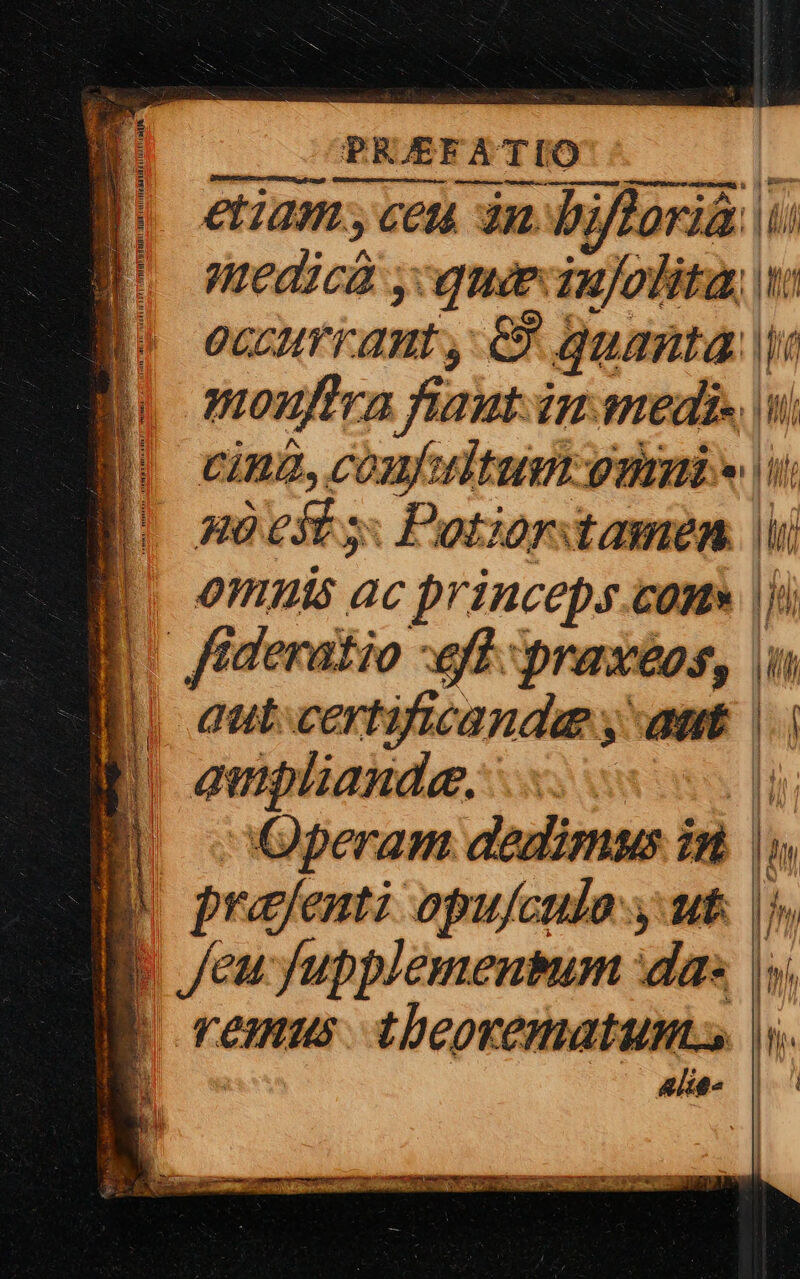 PRÆFATIO
etiam, ceu in hiſtoriâ
medicâ, quæ inſolita
occurrant, & quanta
monſtra fiant in medi-
cinâ, conſultum omni-
nò est; Potior tamen
omnis ac princeps con-
ſideratio eſt praxeos,
aut certificandæ, aut
ampliandæ.
Operam dedimus in
præſenti opuſculo, ut
ſeu ſupplementum da-
remus theorematum,
alio-